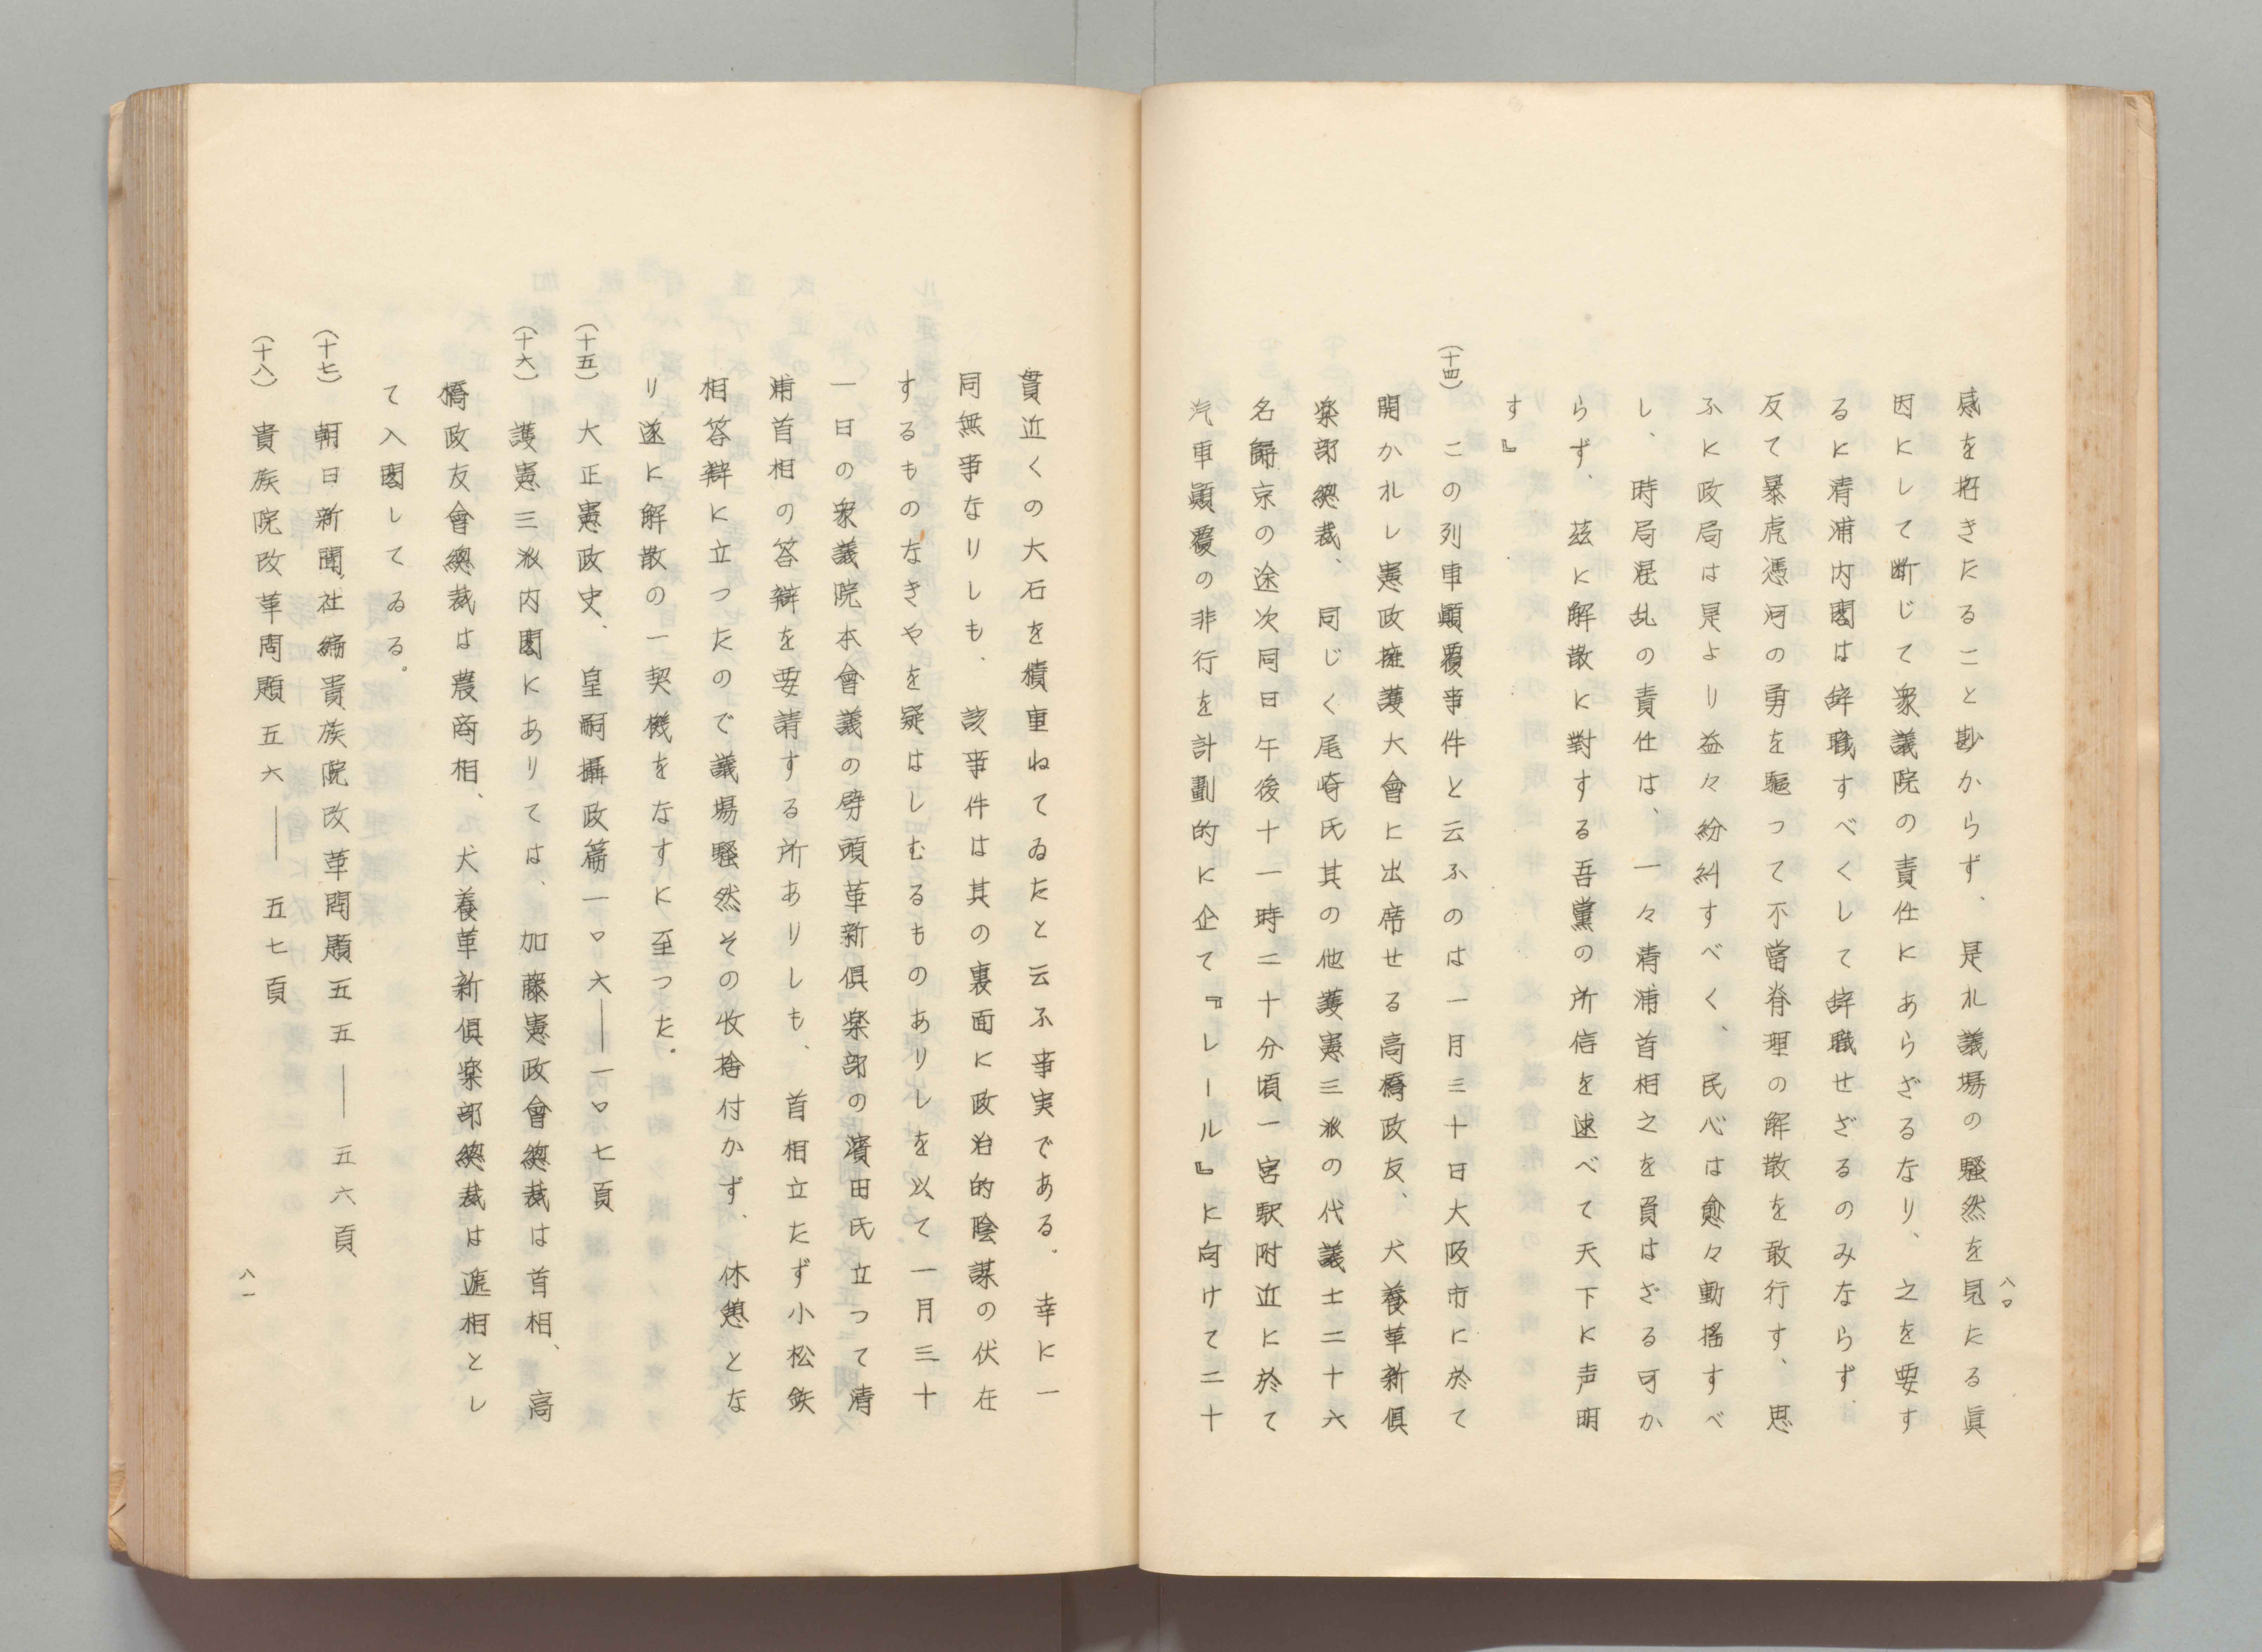 感を招きたること尠からず、是れ議場の騒然を見たる眞
因にして断じて衆議院の責任にあらざるなり、之を要す
るに清浦内閣は辞職すべくして辞職せざるのみならず、
反て暴虎憑河の勇を駆つて不當脊理の解散を敢行す、思
ふに政局は是より益々紛糾すべく、民心は愈々動搖すべ
し、時局混乱の責任は、一々清浦首相之を負はざる可か
らず、茲に解散に對する吾黨の所信を述べて天下に声明
す』
(十四) この列車顚覆事件と云ふのは一月三十日大阪市に於て
開かれし憲政擁護大會に出席せる高橋政友、犬養革新俱
楽部総裁、同じく尾崎氏其の他護憲三派の代議士二十六
名歸京の途次同日午後十一時二十分頃一宮駅附近に於て
汽車顚覆の非行を計劃的に企て『レール』に向けて二十
八〇
貫近くの大石を積重ねてゐたと云ふ事実である。幸に一
同無事なりしも、該事件は其の裏面に政治的陰謀の伏在
するものなきやを疑はしむるものありしを以て一月三十
一日の衆議院本會議の劈頭革新俱楽部の濱田氏立つて清
浦首相の答辯を要請する所ありしも、首相立たず小松鉄
相答辯に立つたので議場騒然その收捨付かず、休憩とな
り遂に解散の一契機をなすに至つた。
(十五) 大正憲政史、皇嗣攝政篇一〇六――一〇七頁
(十六) 護憲三派内閣にありては、加藤憲政會総裁は首相、高
橋政友會総裁は農商相、犬養革新俱楽部総裁は逓相とし
て入閣してゐる。
(十七) 朝日新聞社編貴族院改革問題五五――五六頁
(十八) 貴族院改革問題五六――五七頁
八一